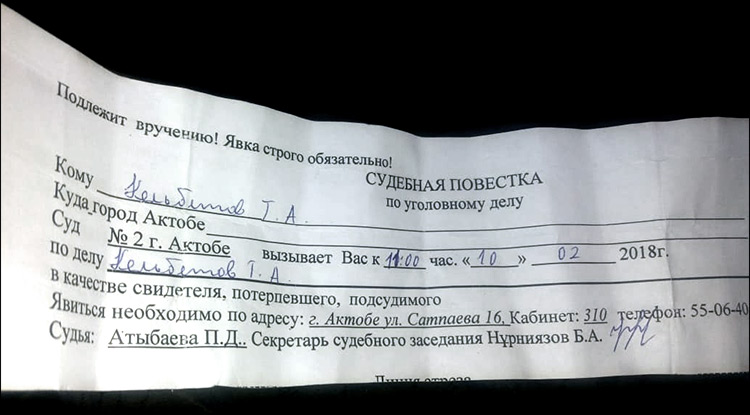 Подлежит вручению! Явка строго обязательно!
СУДЕБНАЯ ПОВЕСТКА
по уголовному делу
Кому Кельбетов Т. А.
Куда город Актобе
Суд № 2 г. Актобе вызывает Вас к 11:00 час. «10» 02 2018г.
по делу Кельбетов Т. А.
в качестве свидетеля, потерпевшего, подсудимого
Явиться необходимо по адресу: г. Актобе ул. Сатпаева 16, Кабинет: 310 телефон: 55-06-40
Судья: Атыбаева П.Д.. Секретарь судебного заседания Нұрниязов Б.А.
Линия отреза